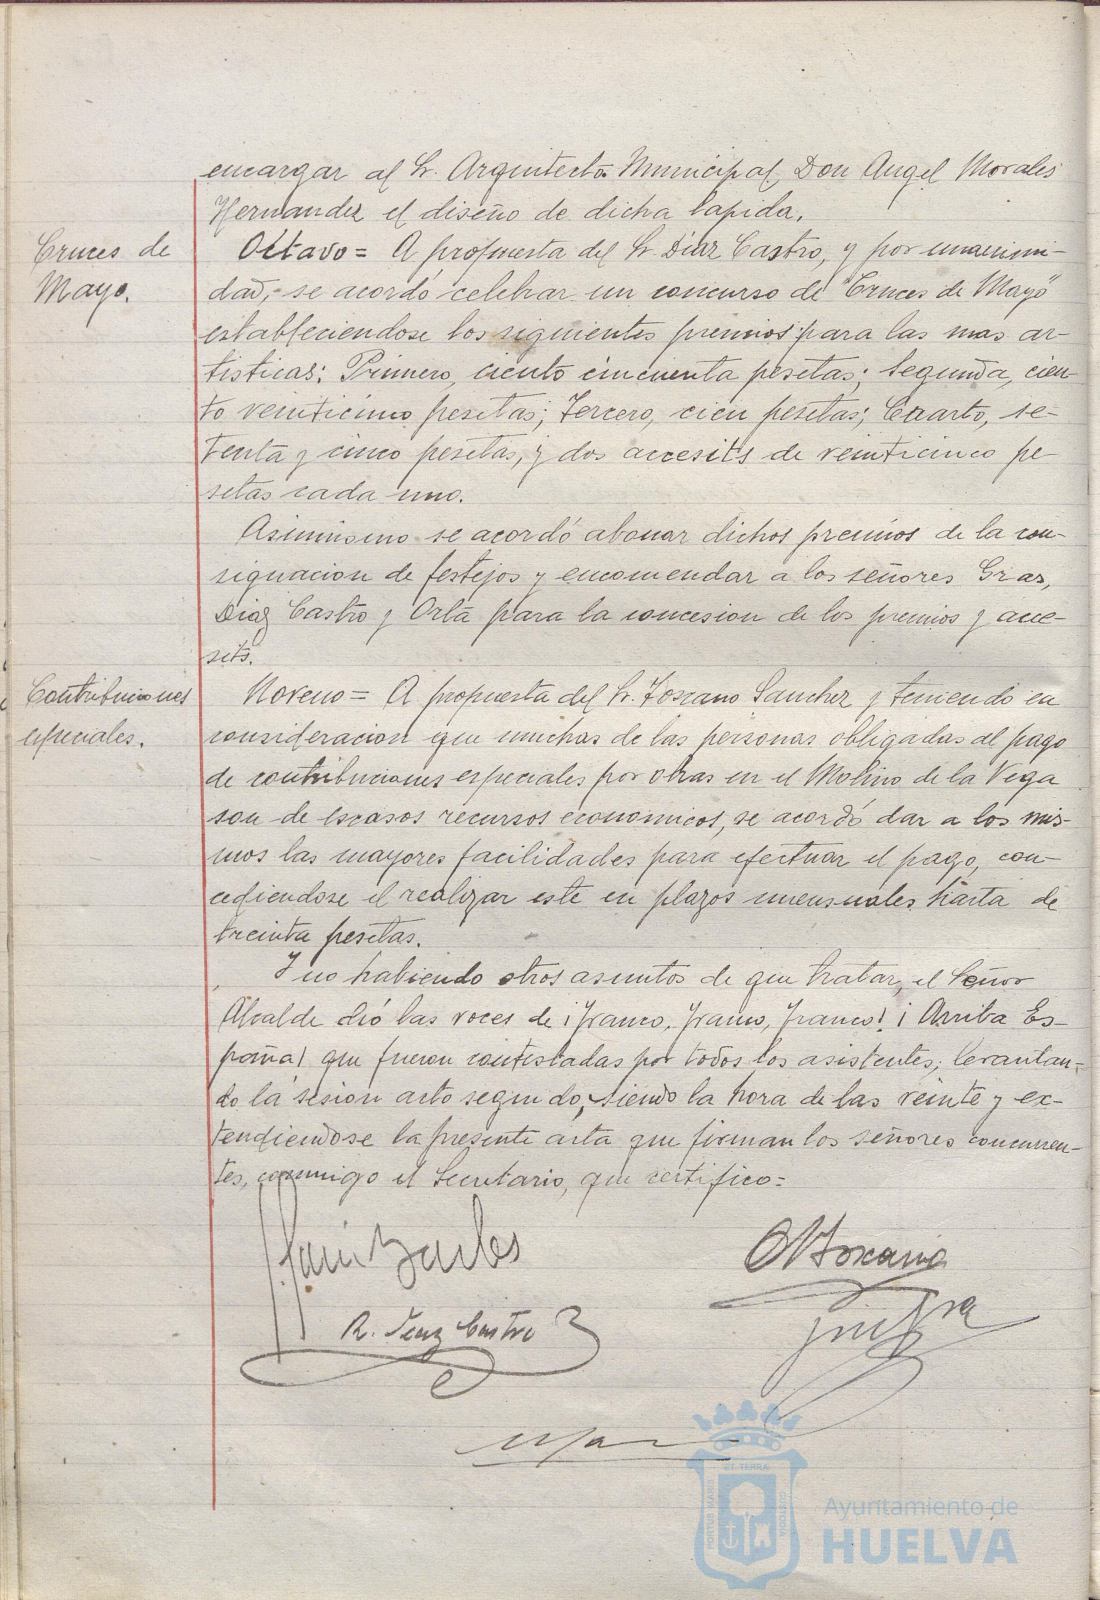 encargar al Sr. Arquitecto Municipal, Don Angel Morales
Hernandez el diseño de dicha lapida.
Cruces de
Mayo.
Octavo = A propuesta del Sr. Diaz Castro, y por unanimi-
dad, se acordó celebrar un concurso de "Cruces de Mayo"
estableciendose los siguientes premios para las mas ar-
tisticas: Primero, ciento cincuenta pesetas; Segundo, cien-
to veinticinco pesetas; Tercero, cien pesetas; Cuarto, se-
tenta y cinco pesetas, y dos accesits de veinticinco pe-
setas cada uno.
Asimismo se acordó abonar dichos premios de la con-
signacion de festejos y encomendar a los señores Gras,
Diaz Castro y Orta para la concesion de los premios y acce-
sits.
Contribuciones
especiales.
Noveno = A propuesta del Sr. Toscano Sanchez y teniendo en
consideracion que muchas de las personas obligadas al pago
de contribuciones especiales por obras en el Molino de la Vega
son de escasos recursos economicos, se acordó dar a los mis-
mos las mayores facilidades para efectuar el pago, con-
cediendose el realizar este en plazos mensuales hasta de
treinta pesetas.
Y no habiendo otros asuntos de que tratar, el Señor
Alcalde dió las voces de ¡Franco, Franco, Franco! ¡Arriba Es-
paña! que fueron contestadas por todos los asistentes, levantan-
do la sesion acto seguido, siendo la hora de las veinte y ex-
tendiendose la presente acta que firman los señores concurren-
tes, conmigo el Secretario, que certifico =
Toscano
R. Diaz Castro
PORTUS MARIS
ET TERRÆ
CUSTODIA
Ayuntamiento de
HUELVA